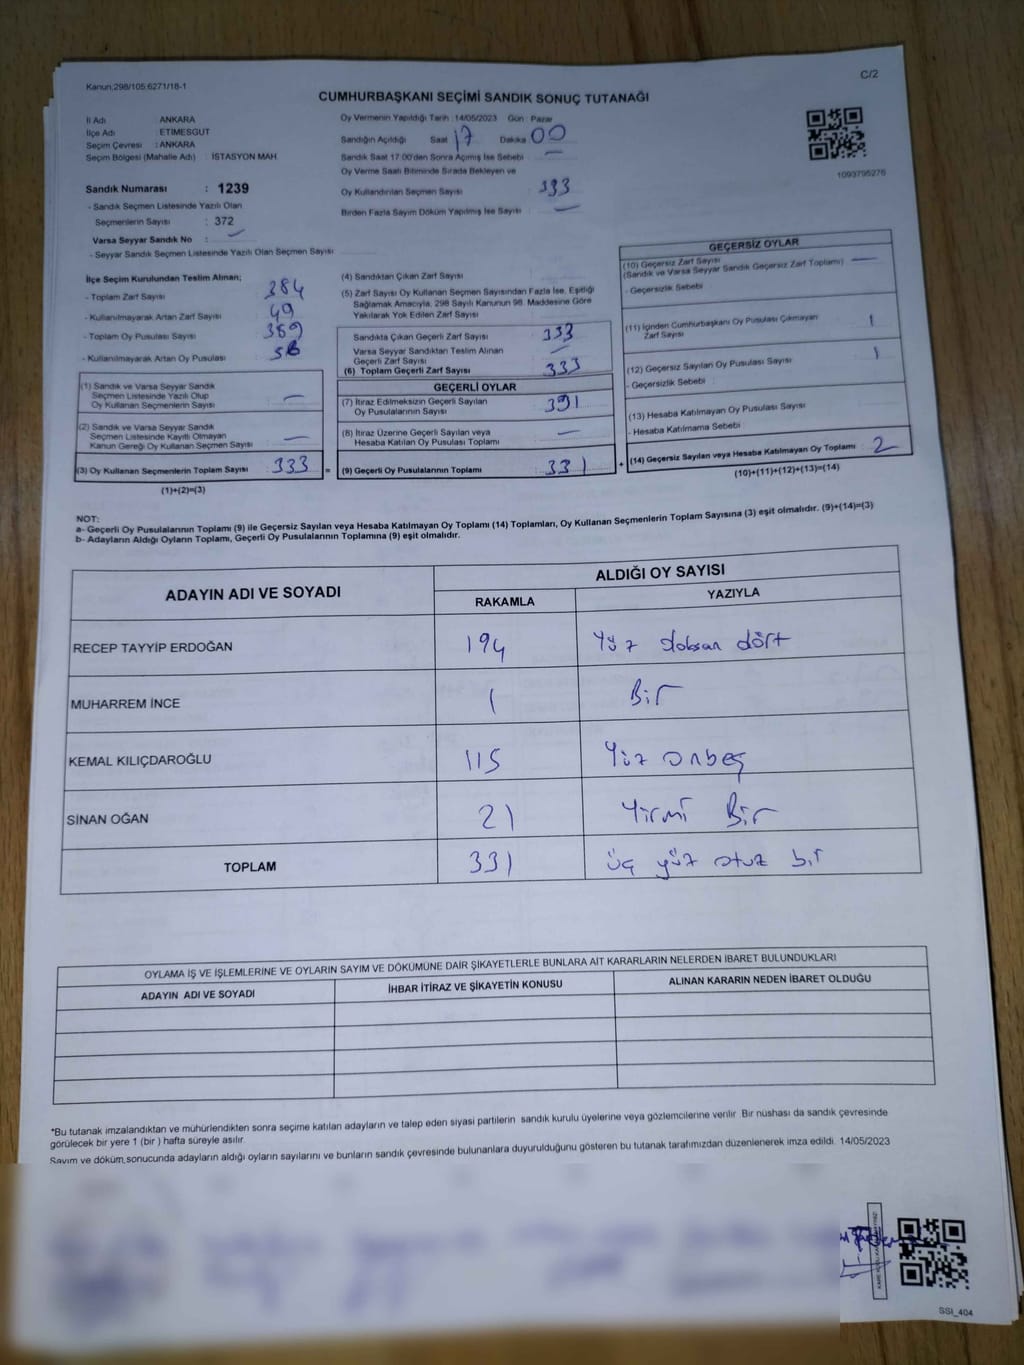 Kanun;298/105;6271/18-1
C/2
CUMHURBAŞKANI SEÇİMİ SANDIK SONUÇ TUTANAĞI
İl Adı ANKARA
İlçe Adı : ETİMESGUT
Seçim Çevresi : ANKARA
Seçim Bölgesi (Mahalle Adı) : İSTASYON MAH.
Sandık Numarası : 1239
- Sandık Seçmen Listesinde Yazılı Olan
Seçmenlerin Sayısı : 372
Varsa Seyyar Sandık No : —
- Seyyar Sandık Seçmen Listesinde Yazılı Olan Seçmen Sayısı
Oy Vermenin Yapıldığı Tarih : 14/05/2023 Gün : Pazar
Sandığın Açıldığı Saat 17 Dakika 00
Sandık Saat 17:00'den Sonra Açımış İse Sebebi —
Oy Verme Saati Bitiminde Sırada Bekleyen ve
Oy Kullandırılan Seçmen Sayısı 333
Birden Fazla Sayım Döküm Yapılmış İse Sayısı —
1093795276
İlçe Seçim Kurulundan Teslim Alınan;
- Toplam Zarf Sayısı 384
- Kullanılmayarak Artan Zarf Sayısı 49
- Toplam Oy Pusulası Sayısı 389
- Kullanılmayarak Artan Oy Pusulası
(1) Sandık ve Varsa Seyyar Sandık
Seçmen Listesinde Yazılı Olup
Oy Kullanan Seçmenlerin Sayısı : —
(2) Sandık ve Varsa Seyyar Sandık
Seçmen Listesinde Kayıtlı Olmayan
Kanun Gereği Oy Kullanan Seçmen Sayısı : —
(3) Oy Kullanan Seçmenlerin Toplam Sayısı : 333 =
(1)+(2)=(3)
(4) Sandıktan Çıkan Zarf Sayısı
(5) Zarf Sayısı Oy Kullanan Seçmen Sayısından Fazla İse, Eşitliği
Sağlamak Amacıyla, 298 Sayılı Kanunun 98. Maddesine Göre
Yakılarak Yok Edilen Zarf Sayısı
Sandıkta Çıkan Geçerli Zarf Sayısı : 333
Varsa Seyyar Sandıktan Teslim Alınan
Geçerli Zarf Sayısı : —
(6) Toplam Geçerli Zarf Sayısı : 333
GEÇERLİ OYLAR
(7) İtiraz Edilmeksizin Geçerli Sayılan
Oy Pusulalarının Sayısı : 331
(8) İtiraz Üzerine Geçerli Sayılan veya
Hesaba Katılan Oy Pusulası Toplamı : —
(9) Geçerli Oy Pusulalarının Toplamı : 331 +
GEÇERSİZ OYLAR
(10) Geçersiz Zarf Sayısı
(Sandık ve Varsa Seyyar Sandık Geçersiz Zarf Toplamı) —
- Geçersizlik Sebebi
(11) İçinden Cumhurbaşkanı Oy Pusulası Çıkmayan
Zarf Sayısı 1
(12) Geçersiz Sayılan Oy Pusulası Sayısı 1
- Geçersizlik Sebebi :
(13) Hesaba Katılmayan Oy Pusulası Sayısı
- Hesaba Katılmama Sebebi
(14) Geçersiz Sayılan veya Hesaba Katılmayan Oy Toplamı : 2
(10)+(11)+(12)+(13)=(14)
NOT:
a- Geçerli Oy Pusulalarının Toplamı (9) ile Geçersiz Sayılan veya Hesaba Katılmayan Oy Toplamı (14) Toplamları, Oy Kullanan Seçmenlerin Toplam Sayısına (3) eşit olmalıdır. (9)+(14)=(3)
b- Adayların Aldığı Oyların Toplamı, Geçerli Oy Pusulalarının Toplamına (9) eşit olmalıdır.
ADAYIN ADI VE SOYADI ALDIĞI OY SAYISI
RAKAMLA YAZIYLA
RECEP TAYYİP ERDOĞAN 194 Yüz doksan dört
MUHARREM İNCE 1 Bir
KEMAL KILIÇDAROĞLU 115 Yüz onbeş
SİNAN OĞAN 21 Yirmi Bir
TOPLAM 331 üç yüz otuz bir
OYLAMA İŞ VE İŞLEMLERİNE VE OYLARIN SAYIM VE DÖKÜMÜNE DAİR ŞİKAYETLERLE BUNLARA AİT KARARLARIN NELERDEN İBARET BULUNDUKLARI
ADAYIN ADI VE SOYADI İHBAR İTİRAZ VE ŞİKAYETİN KONUSU ALINAN KARARIN NEDEN İBARET OLDUĞU
*Bu tutanak imzalandıktan ve mühürlendikten sonra seçime katılan adayların ve talep eden siyasi partilerin sandık kurulu üyelerine veya gözlemcilerine verilir. Bir nüshası da sandık çevresinde
görülecek bir yere 1 (bir ) hafta süreyle asılır.
Sayım ve döküm sonucunda adayların aldığı oyların sayılarını ve bunların sandık çevresinde bulunanlara duyurulduğunu gösteren bu tutanak tarafımızdan düzenlenerek imza edildi. 14/05/2023
SSI_404